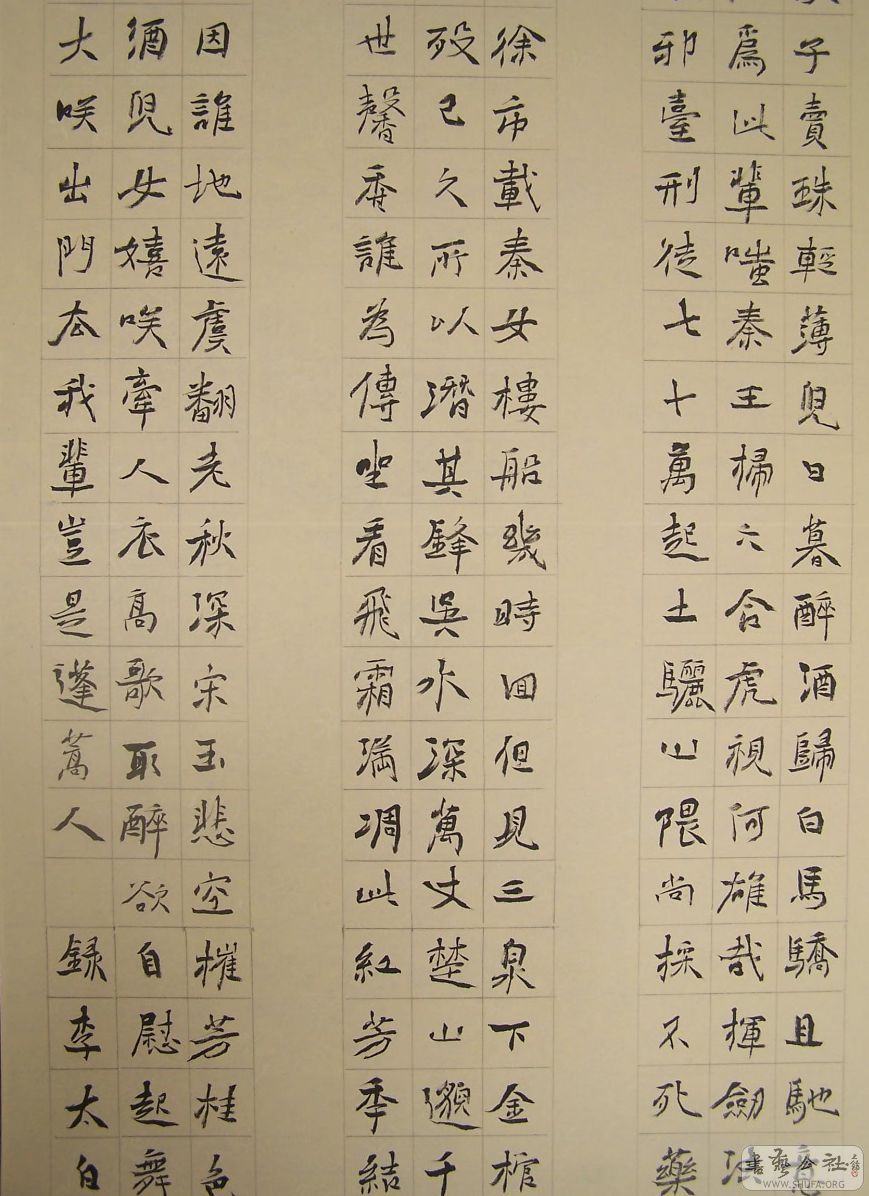 子賣珠輕薄兒日暮醉酒歸白馬驕且馳意
爲此輩嗤秦王掃六合虎視何雄哉揮劍決
邪臺刑徒七十萬起土驪山隈尚採不死藥
徐市載秦女樓船幾時回但見三泉下金棺
歿已久所以潛其鋒吳水深萬丈楚山邈千
世馨香誰為傳坐看飛霜滿凋此紅芳秊結
因誰地遠虞翻老秋深宋玉悲空摧芳桂色
酒兒女嬉咲牽人衣高歌取醉欲自慰起舞
大咲出門厺我輩豈是蓬蒿人 錄李太白
書藝公社
WWW.SHUFA.ORG